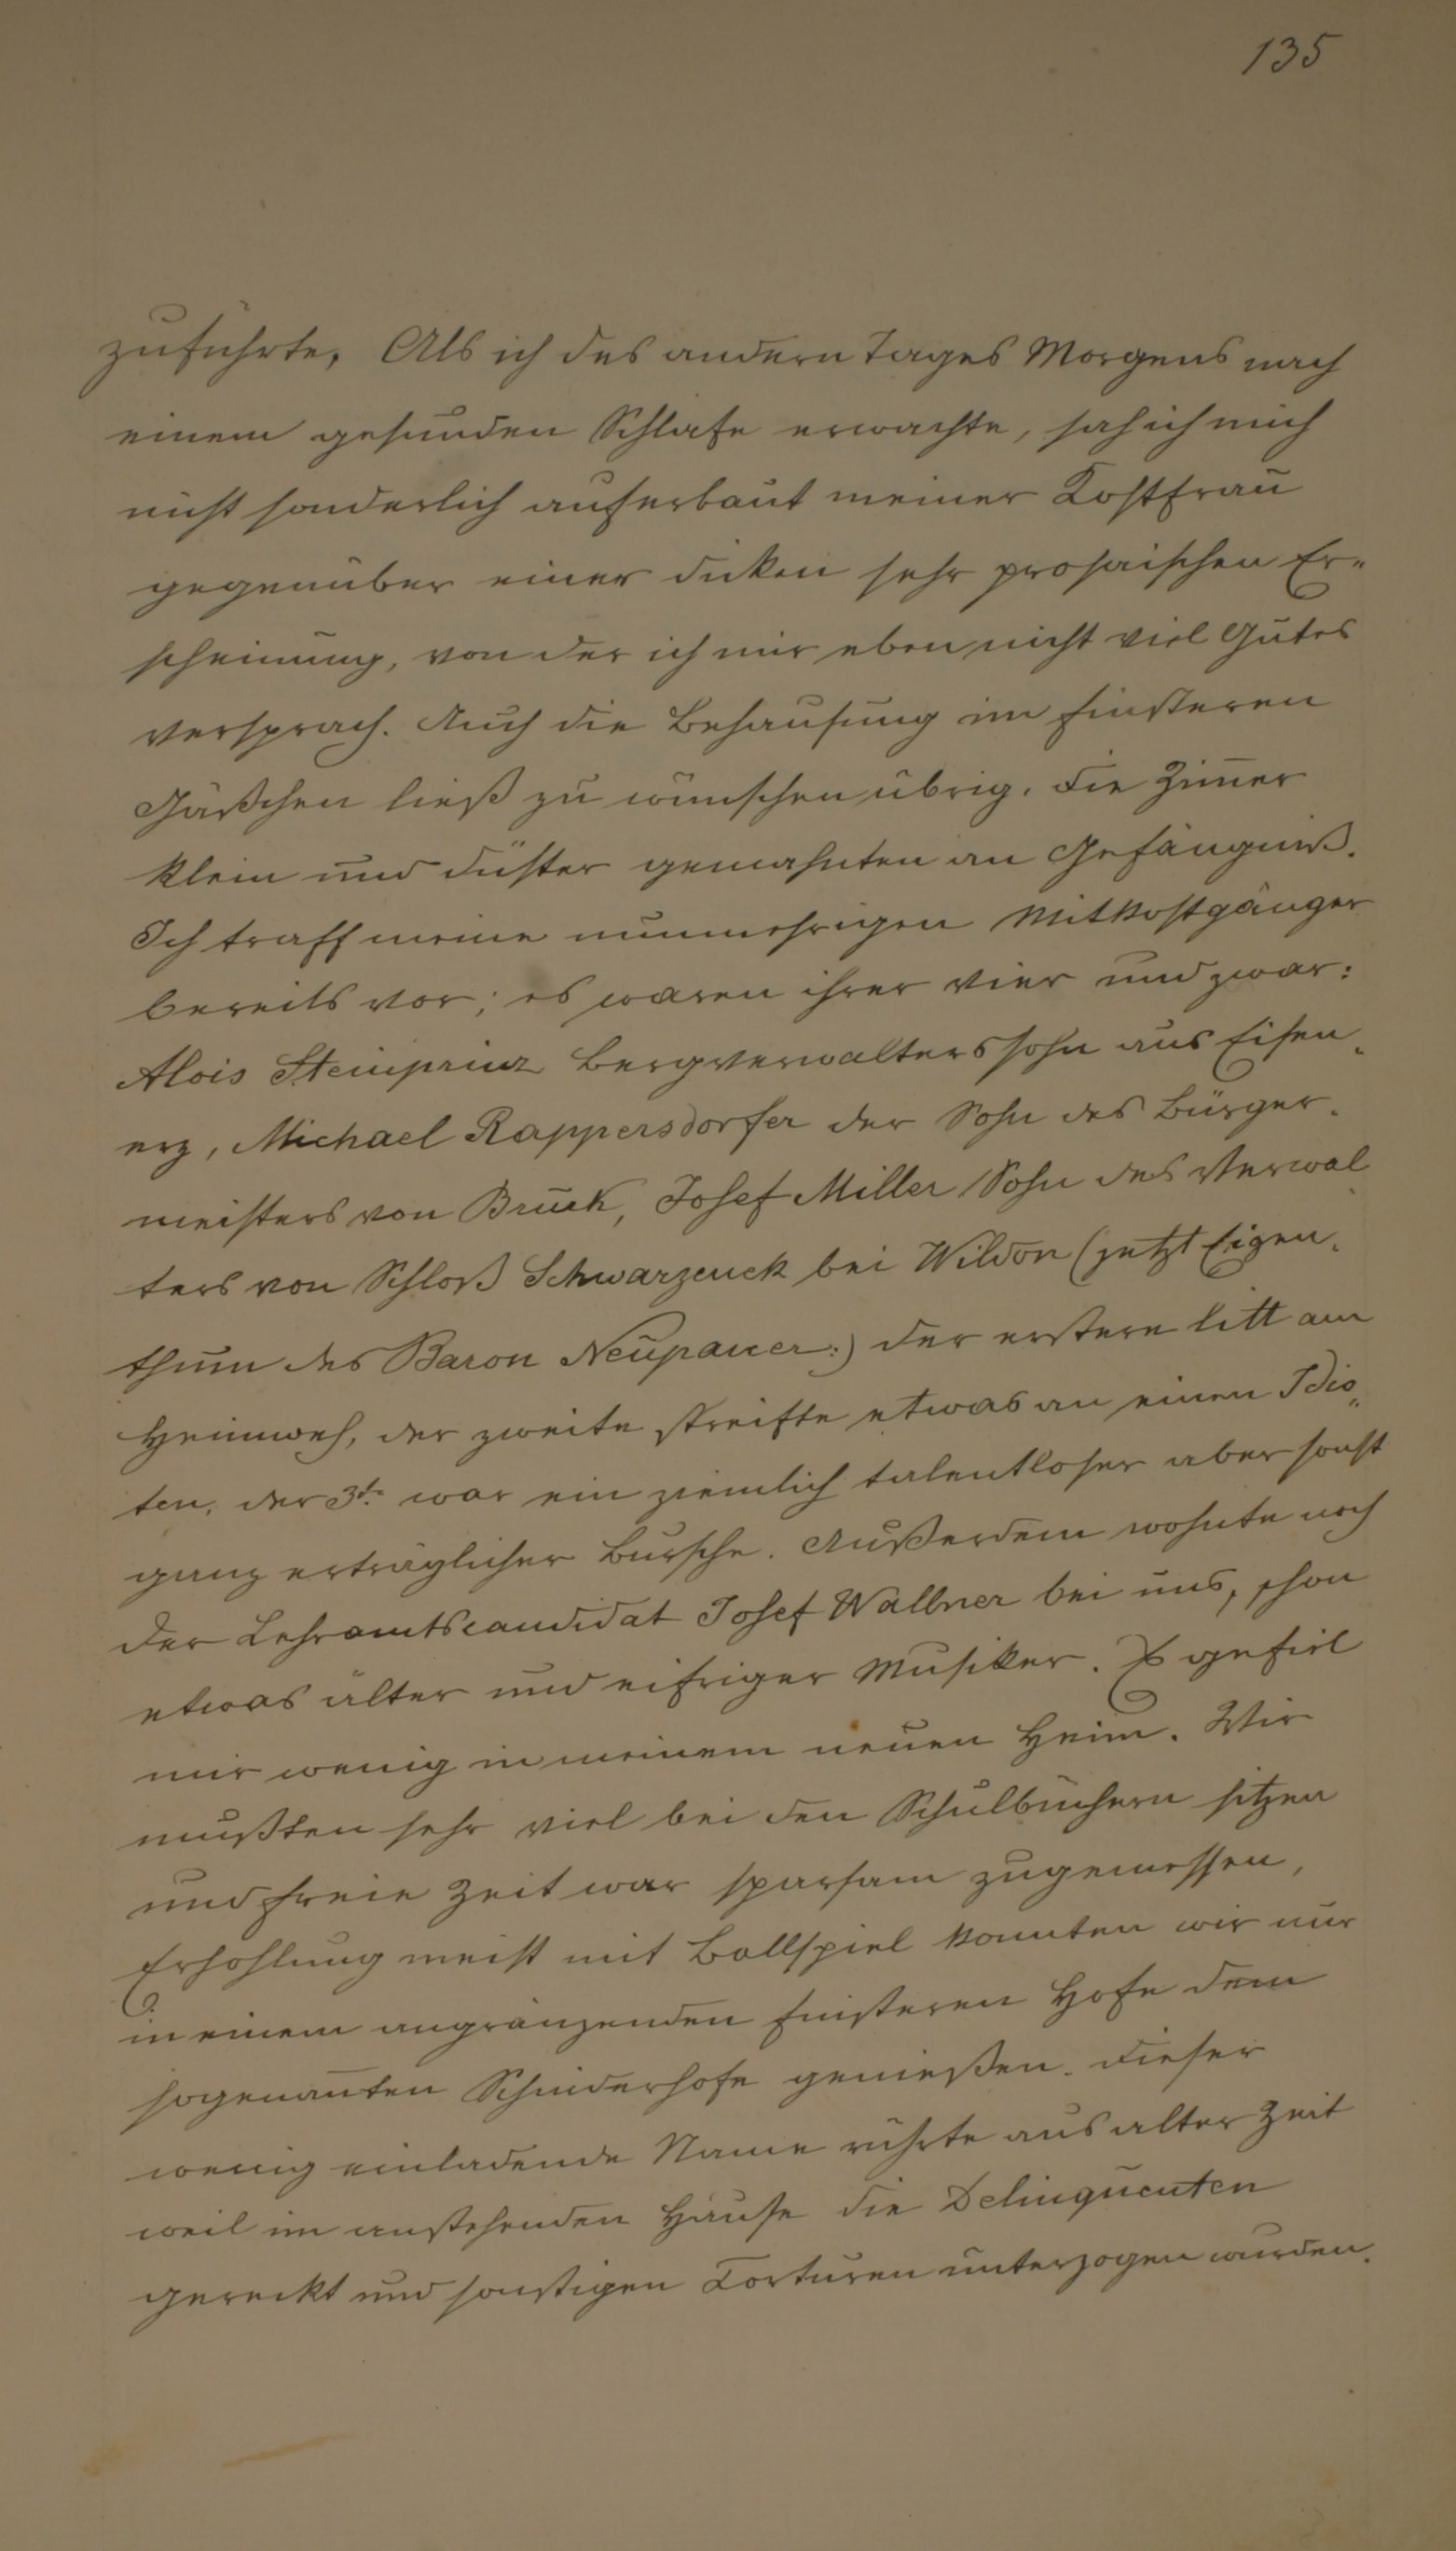 135
zuführte, Als ich des andern Tages Morgens nach
einem gesunden Schlafe erwachte, sah ich mich
nicht sonderlich auferbaut meiner Kostfrau
gegenüber einer dicken sehr prosaischen Er=
scheinung, von der ich mir eben nicht viel Gutes
versprach. Auch die Behausung im finsteren
Gäßchen ließ zu wünschen übrig. Die Zim̅er
klein und düster gemahnten an Gefängniß.
Ich traff meine nunmehrigen Mitkostgänger
bereits vor; es waren ihrer vier und zwar:
Alois Steinprinz Bergverwalterssohn aus Eisen-
erz, Michael Rappersdorfer der Sohn des Bürger-
meisters von Bruck, Josef Miller Sohn des Verwal
ters von Schloß Schwarzeneck bei Wildon (jetzt Eigen-
thum des Baron Neupauer:) der erstere litt am
Heimweh, der zweite streifte etwas an einen Idio=
ten, der 3te war ein ziemlich talentloser aber sonst
ganz erträglicher Bursche. Außerdem wohnte noch
der Lehramtscandidat Josef Wallner bei uns, schon
etwas älter und eifriger Musiker. Es gefiel
mir wenig in meinem neuen Heim. Wir
mußten sehr viel bei den Schulbüchern sitzen
und freie Zeit war sparsam zugemessen,
Erhohlung meist mit Ballspiel konnten wir nur
in einem angränzenden finsteren Hofe dem
sogenan̅ten Schinderhofe genießen. Dieser
wenig einladende Name rührte aus alter Zeit
weil im anstehenden Hause die Delinquenten
gereckt und sonstigen Torturen unterzogen wurden.